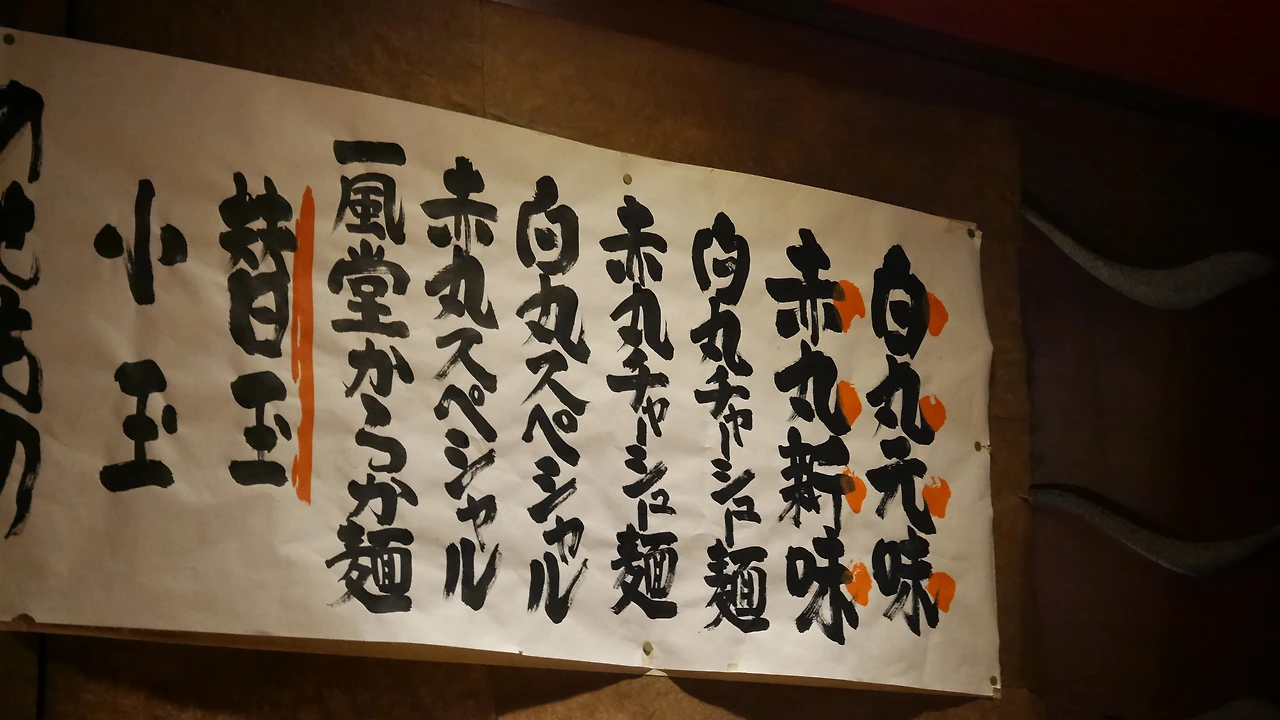 白丸元味
赤丸新味
白丸チャーシュー麺
赤丸チャーシュー麺
白丸スペシャル
赤丸スペシャル
一風堂からか麺
替玉
小玉